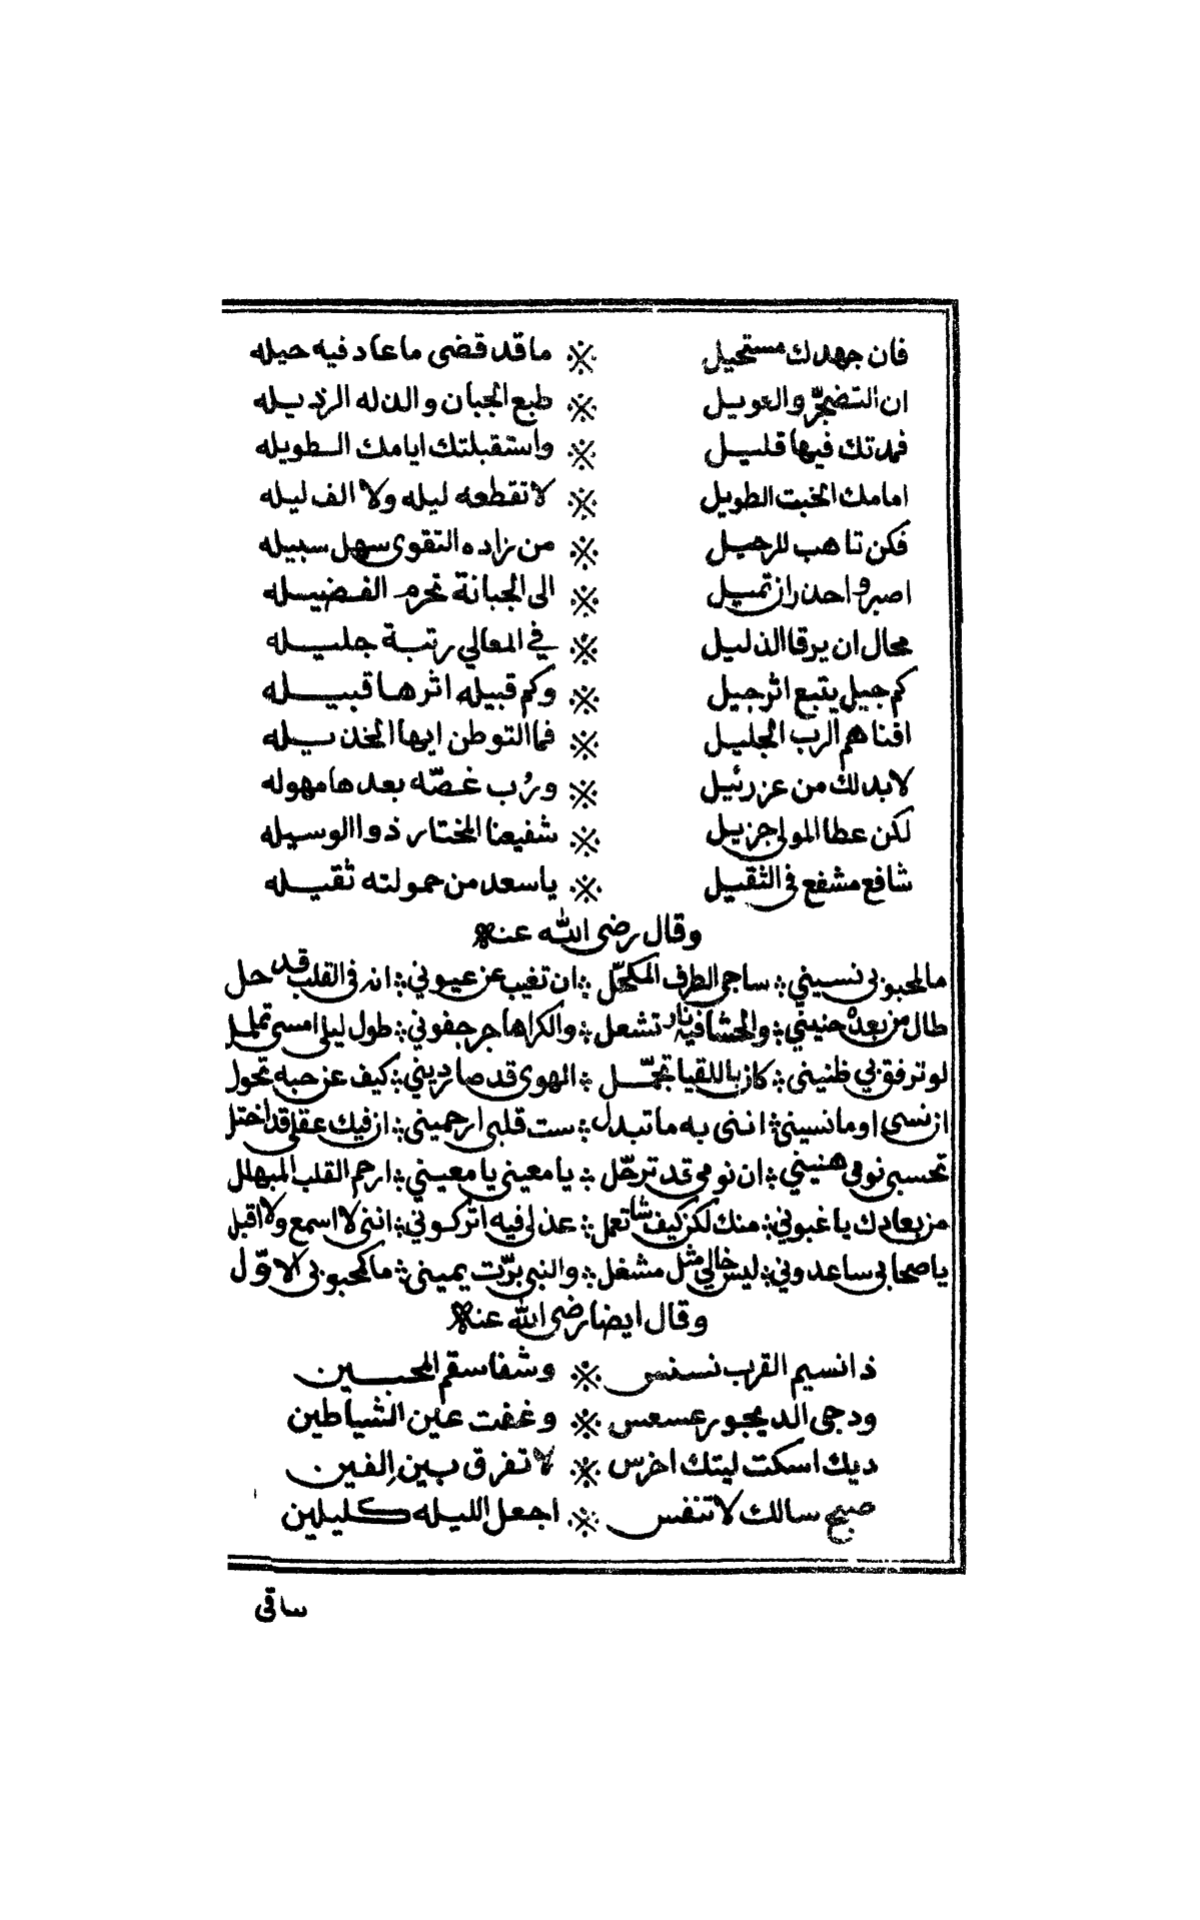 فان جهدك مستحيل ※ ما قد قضى ما عاد فيه حيله
ان التضجّر والعويل ※ طبع الجبان والدله الرذيله
فمدتك فيها قليل ※ واستقبلتك ايامك الطويله
امامك الخبت الطويل ※ لا تقطعه ليله ولا الف ليله
فكن تاهب للرحيل ※ من زاده التقوى سهل سبيله
اصبر واحذر ان تميل ※ الى الجبانة تحرم الفضيله
محال ان يرقا الذليل ※ في المعالي رتبة جليله
كم جيل يتبع اثر جيل ※ وكم قبيله اثرها قبيله
افناهم الرب الجليل ※ فما التوطن ايها الخذيله
لابد لك من عزرئيل ※ ورُب غصّه بعدها مهوله
لكن عطا المولى جزيل ※ شفيعنا المختار ذوا الوسيله
شافع مشفع في الثقيل ※ يا سعد من حمولته ثقيله
وقال رضى الله عنه
ما لمحبوبى نسيني ؞ ساجى الطرف المكحّل ؞ ان تغيب عن عيوني ؞ انه فى القلب قد حل
طال من بعده حنيني ؞ والحشا فيه نار تشعل ؞ والكرا هاجر جفوني ؞ طول ليلى امسى تململ
لو ترفق بي ظنينى ؞ كان باللقيا تجمّل ؞ الهوى قد صار ديني ؞ كيف عن حبه تحول
ان نسى او ما نسيني ؞ اننى به ما تبدل ؞ ست قلبى ارحميني ؞ ان فيك عقلى قد اختل
تحسبى نومى هنيني ؞ ان نومى قد ترحّل ؞ يا معينى يا معيني ؞ ارحم القلب المبهلل
من بعادك يا غبوني ؞ منك لكن كيف شا تعمل ؞ عذلى فيه اتركوني ؞ اننى لا اسمع ولا اقبل
يا صحابى ساعدوني ؞ ليس خالي مثل مشغل ؞ والنبى برّت يمينى ؞ ما كمحبوبى لاوّل
وقال ايضا رضى الله عنه
ذا نسيم القرب نسنس ※ وشفا سقم المحبين
ودجى الديجور عسعس ※ وغفت عين الشياطين
ديك اسكت ليتك اخرس ※ لا تفرق بين الفين
صبح سالك لا تنفس ※ اجعل الليله كليلين
ساقى